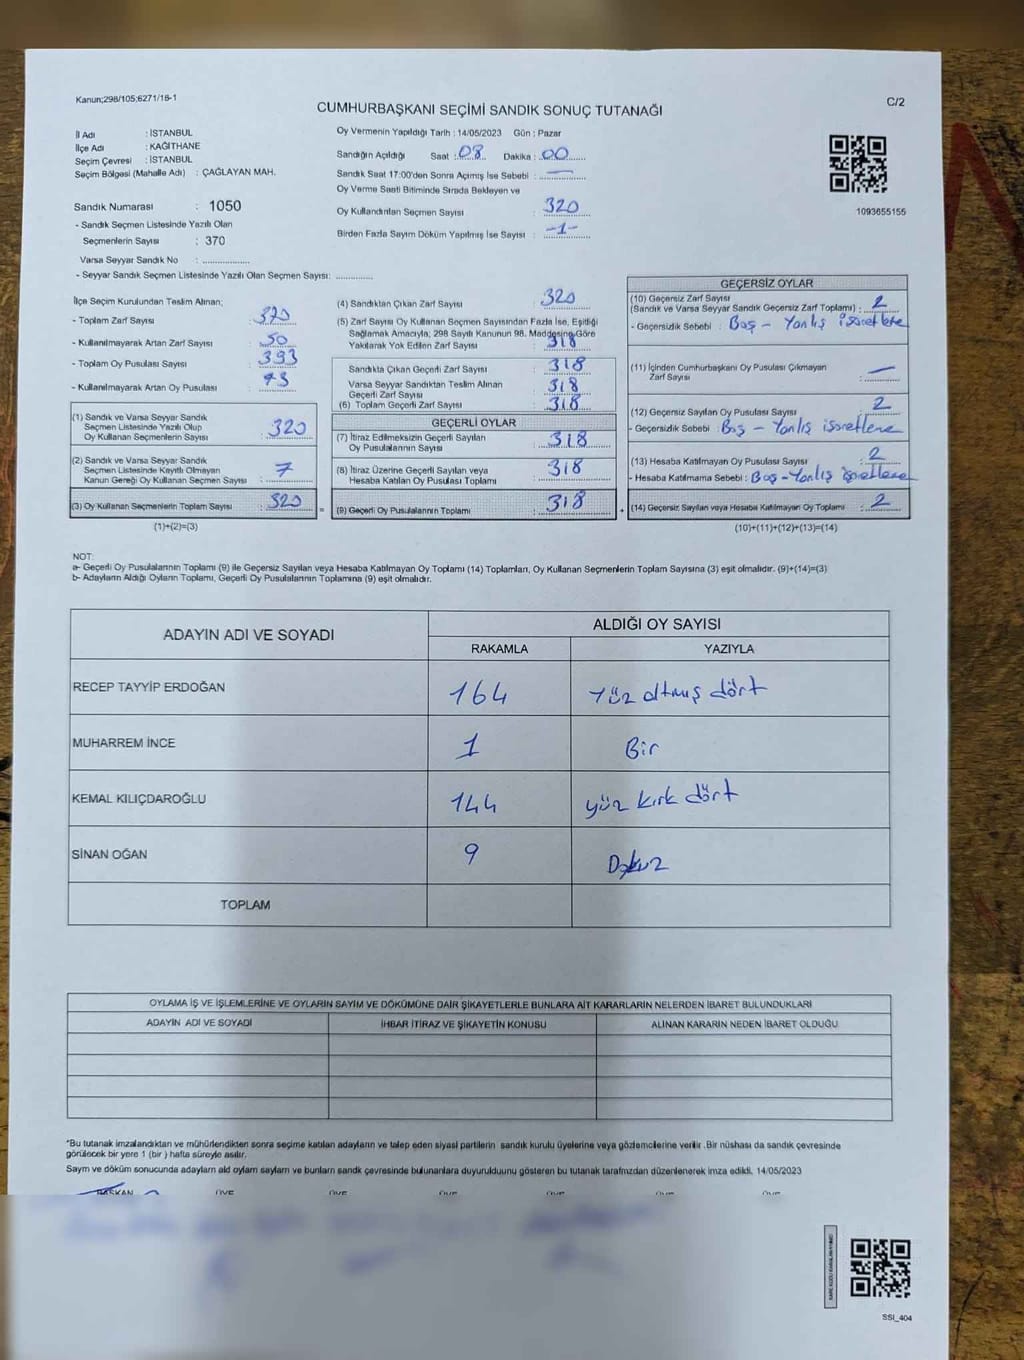 Kanun;298/105;6271/16-1
CUMHURBAŞKANI SEÇİMİ SANDIK SONUÇ TUTANAĞI
C/2
İl Adı : İSTANBUL
İlçe Adı : KAĞITHANE
Seçim Çevresi : İSTANBUL
Seçim Bölgesi (Mahalle Adı) : ÇAĞLAYAN MAH.
Sandık Numarası : 1050
- Sandık Seçmen Listesinde Yazılı Olan
Seçmenlerin Sayısı : 370
Varsa Seyyar Sandık No :
- Seyyar Sandık Seçmen Listesinde Yazılı Olan Seçmen Sayısı:
Oy Vermenin Yapıldığı Tarih : 14/05/2023 Gün : Pazar
Sandığın Açıldığı Saat : 08 Dakika : 00
Sandık Saat 17:00'den Sonra Açımış İse Sebebi : —
Oy Verme Saati Bitiminde Sırada Bekleyen ve
Oy Kullandırılan Seçmen Sayısı : 320
Birden Fazla Sayım Döküm Yapılmış İse Sayısı : -1-
1093655155
İlçe Seçim Kurulundan Teslim Alınan;
- Toplam Zarf Sayısı : 370
- Kullanılmayarak Artan Zarf Sayısı : 50
- Toplam Oy Pusulası Sayısı : 393
- Kullanılmayarak Artan Oy Pusulası :
(1) Sandık ve Varsa Seyyar Sandık
Seçmen Listesinde Yazılı Olup
Oy Kullanan Seçmenlerin Sayısı : 320
(2) Sandık ve Varsa Seyyar Sandık
Seçmen Listesinde Kayıtlı Olmayan
Kanun Gereği Oy Kullanan Seçmen Sayısı : 7
(3) Oy Kullanan Seçmenlerin Toplam Sayısı : 320
(1)+(2)=(3)
(4) Sandıktan Çıkan Zarf Sayısı : 320
(5) Zarf Sayısı Oy Kullanan Seçmen Sayısından Fazla İse, Eşitliği
Sağlamak Amacıyla; 298 Sayılı Kanunun 98. Maddesine Göre
Yakılarak Yok Edilen Zarf Sayısı : 318
Sandıkta Çıkan Geçerli Zarf Sayısı : 318
Varsa Seyyar Sandıktan Teslim Alınan
Geçerli Zarf Sayısı : 318
(6) Toplam Geçerli Zarf Sayısı : 318
GEÇERLİ OYLAR
(7) İtiraz Edilmeksizin Geçerli Sayılan
Oy Pusulası Sayısı : 318
(8) İtiraz Üzerine Geçerli Sayılan veya
Hesaba Katılan Oy Pusulası Toplamı : 318
(9) Geçerli Oy Pusulalarının Toplamı : 318
GEÇERSİZ OYLAR
(10) Geçersiz Zarf Sayısı
(Sandık ve Varsa Seyyar Sandık Geçersiz Zarf Toplamı) : 2
- Geçersizlik Sebebi : Boş - Yanlış işaretleme
(11) İçinden Cumhurbaşkanı Oy Pusulası Çıkmayan
Zarf Sayısı : —
(12) Geçersiz Sayılan Oy Pusulası Sayısı : 2
- Geçersizlik Sebebi : Boş - Yanlış işaretleme
(13) Hesaba Katılmayan Oy Pusulası Sayısı : 2
- Hesaba Katılmama Sebebi : Boş - Yanlış işaretleme
(14) Geçersiz Sayılan veya Hesaba Katılmayan Oy Toplamı : 2
(10)+(11)+(12)+(13)=(14)
NOT:
a- Geçerli Oy Pusulalarının Toplamı (9) ile Geçersiz Sayılan veya Hesaba Katılmayan Oy Toplamı (14) Toplamları, Oy Kullanan Seçmenlerin Toplam Sayısına (3) eşit olmalıdır. (9)+(14)=(3)
b- Adayların Aldığı Oyların Toplamı, Geçerli Oy Pusulalarının Toplamına (9) eşit olmalıdır.
ADAYIN ADI VE SOYADI
ALDIĞI OY SAYISI
RAKAMLA YAZIYLA
RECEP TAYYİP ERDOĞAN 164 Yüz altmış dört
MUHARREM İNCE 1 Bir
KEMAL KILIÇDAROĞLU 144 yüz kırk dört
SİNAN OĞAN 9 Dokuz
TOPLAM
OYLAMA İŞ VE İŞLEMLERİNE VE OYLARIN SAYIM VE DÖKÜMÜNE DAİR ŞİKAYETLERLE BUNLARA AİT KARARLARIN NELERDEN İBARET BULUNDUKLARI
ADAYIN ADI VE SOYADI İHBAR İTİRAZ VE ŞİKAYETİN KONUSU ALINAN KARARIN NEDEN İBARET OLDUĞU
*Bu tutanak imzalandıktan ve mühürlendikten sonra seçime katılan adayların ve talep eden siyasi partilerin sandık kurulu üyelerine veya gözlemcilerine verilir .Bir nüshası da sandık çevresinde
görülecek bir yere 1 (bir ) hafta süreyle asılır.
Sayım ve döküm sonucunda adayların aldı oyların sayıların ve bunların sandık çevresinde bulunanlara duyurulduunu gösteren bu tutanak tarafımızdan düzenlenerek imza edildi. 14/05/2023
BAŞKAN ÜYE ÜYE ÜYE ÜYE ÜYE ÜYE
SSI_404